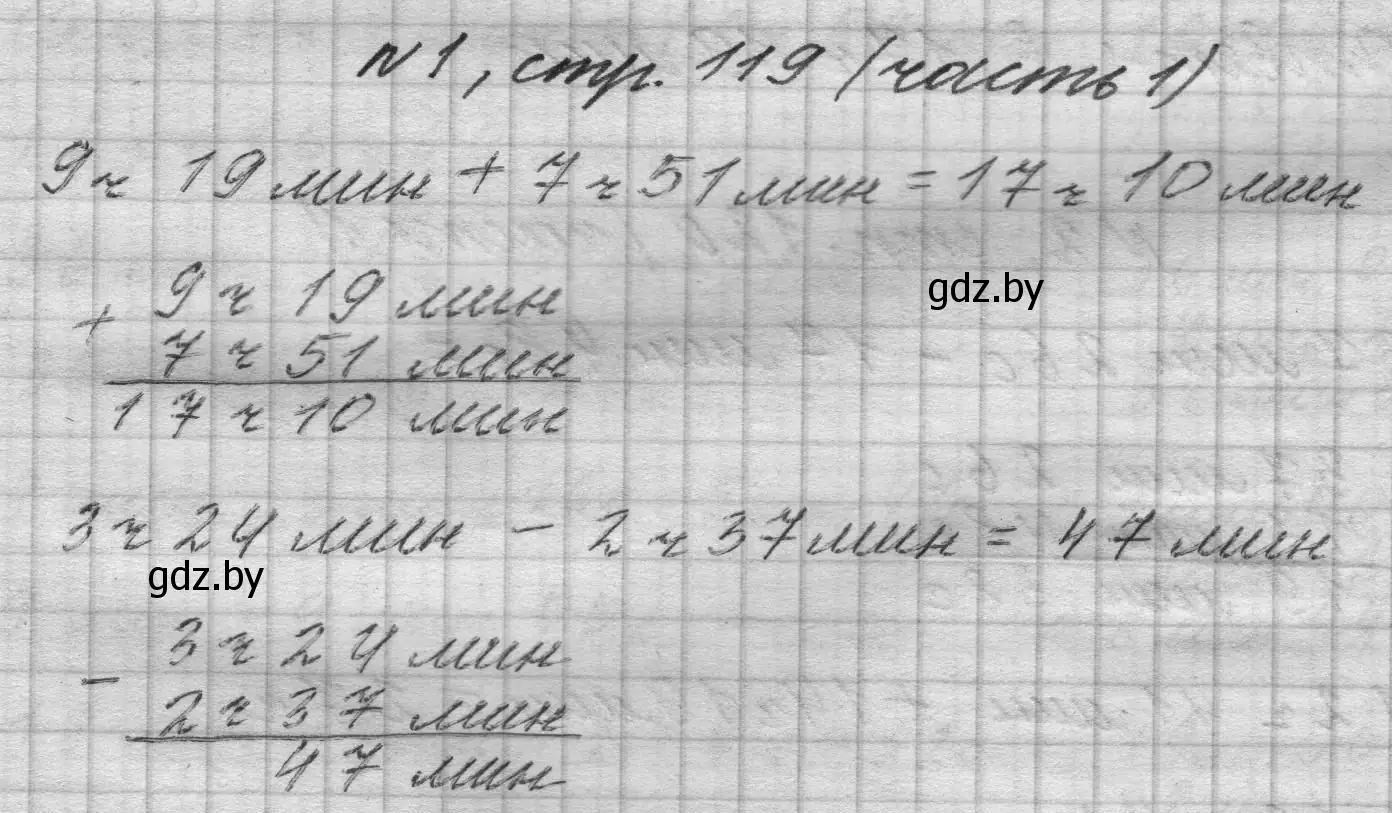 №1, стр. 119 (часть 1)
9ч 19 мин + 7ч 51 мин = 17ч 10 мин
gdz.by
+ 9ч 19 мин
7ч 51 мин
17ч 10 мин
3ч 24 мин - 2ч 37 мин = 47 мин
gdz.by
- 3ч 24 мин
2ч 37 мин
47 мин